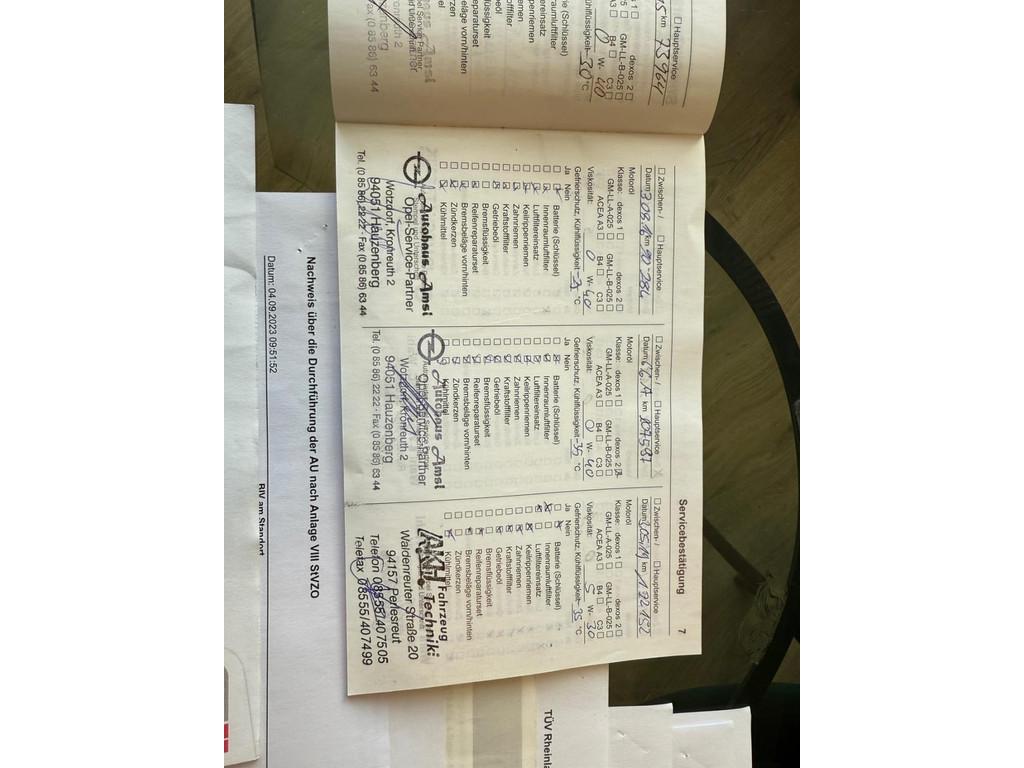 Servicebestätigung
7
☐ Hauptservice
km 73964
dexos 2 ☐
GM-LL-B-025 ☐
A3 ☐ B4 ☐ C3 ☐
0 W- 40
Kühlflüssigkeit -30 °C
terie (Schlüssel)
enraumluftfilter
tfiltereinsatz
riemen
stofffilter
eöl
flüssigkeit
eparaturset
eläge vorn/hinten
Fax (0 85 86) 63 44
☐ Zwischen- / ☐ Hauptservice
Datum 30.8.16 km 90.284
Motoröl
Klasse: dexos 1 ☐ dexos 2 ☐
GM-LL-A-025 ☐ GM-LL-B-025 ☐
ACEA A3 ☐ B4 ☐ C3 ☐
Viskosität: 0 W- 40
Gefrierschutz, Kühlflüssigkeit °C
Ja Nein
Batterie (Schlüssel)
Innenraumluftfilter
Luftfiltereinsatz
Keilrippenriemen
Zahnriemen
Kraftstofffilter
Getriebeöl
Bremsflüssigkeit
Reifenreparaturset
Bremsbeläge vorn/hinten
Zündkerzen
Kühlmittel
Autohaus Amsl
Opel-Service-Partner
Wotzdorf, Kronreuth 2
94051 Hauzenberg
Tel. (0 85 86) 22 22 · Fax (0 85 86) 63 44
☐ Zwischen- / ☐ Hauptservice
Datum km 107587
Motoröl
Klasse: dexos 1 ☐ dexos 2 ☒
GM-LL-A-025 ☐ GM-LL-B-025 ☐
ACEA A3 ☐ B4 ☐ C3 ☐
Viskosität: 0 W- 40
Gefrierschutz, Kühlflüssigkeit -35 °C
Ja Nein
Batterie (Schlüssel)
Innenraumluftfilter
Luftfiltereinsatz
Keilrippenriemen
Zahnriemen
Kraftstofffilter
Getriebeöl
Bremsflüssigkeit
Reifenreparaturset
Bremsbeläge vorn/hinten
Zündkerzen
Kühlmittel
Autohaus Amsl
Opel-Service-Partner
Wotzdorf, Kronreuth 2
94051 Hauzenberg
Tel. (0 85 86) 22 22 · Fax (0 85 86) 63 44
☐ Zwischen- / ☐ Hauptservice
Datum km 122152
Motoröl
Klasse: dexos 1 ☐ dexos 2 ☐
GM-LL-A-025 ☐ GM-LL-B-025 ☐
ACEA A3 ☐ B4 ☐ C3 ☐
Viskosität: 5 W- 30
Gefrierschutz, Kühlflüssigkeit -35 °C
Ja Nein
Batterie (Schlüssel)
Innenraumluftfilter
Luftfiltereinsatz
Keilrippenriemen
Zahnriemen
Kraftstofffilter
Getriebeöl
Bremsflüssigkeit
Reifenreparaturset
Bremsbeläge vorn/hinten
Zündkerzen
Kühlmittel
AKH Fahrzeug
Technik
Waldenreuter Straße 20
94157 Perlesreut
Telefon 08555/407505
Telefax 08555/407499
TÜV Rheinla
Nachweis über die Durchführung der AU nach Anlage VIII StVZO
Datum: 04.09.2023 09:51:52